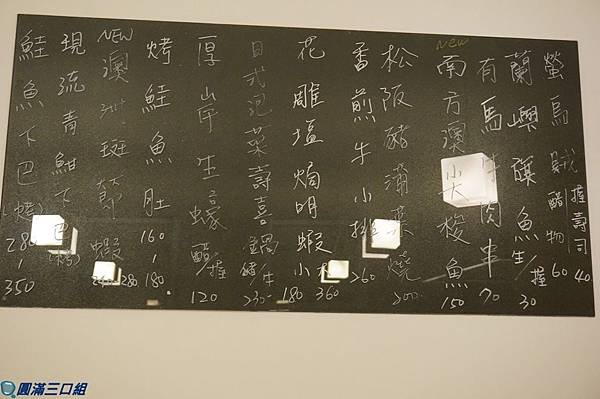 螢烏賊 醋物 60 握壽司 40
蘭嶼 飛魚 生/握 30
有馬牛肉串 70
NEW 南方澳 大梭魚 150
松阪豬蒲燒 200
香煎牛小排 260
花雕塩焗明蝦 小 180 360
日式泡菜壽喜鍋 豬/牛 230
厚岸生蠔 醋/握 120
烤鮭魚肚 160 / 180
NEW 澳洲斑節蝦 280
現流青魽下巴
鮭魚下巴(烤) 280 / 350
圓滿三口組